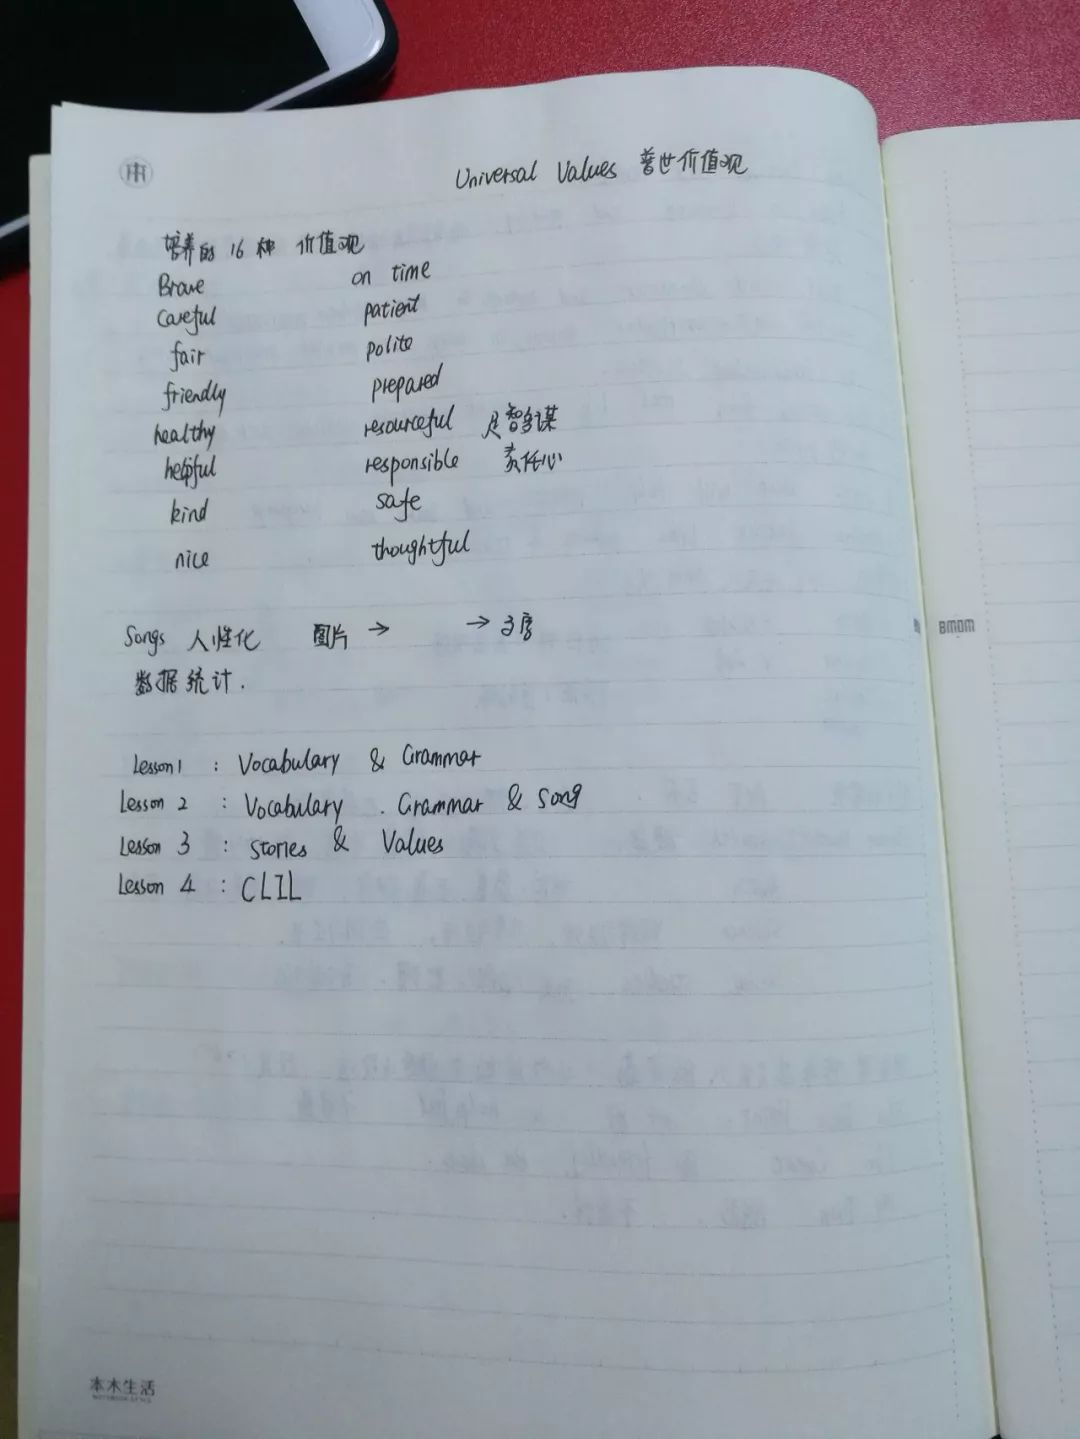 Universal Values 普世价值观
培养的 16 种 价值观
Brave on time
Careful patient
fair polite
friendly prepared
healthy resourceful 足智多谋
helpful responsible 责任心
kind safe
nice thoughtful
Songs 人性化 图片 → →
数据统计.
BMDM
Lesson 1 : Vocabulary & Grammar
Lesson 2 : Vocabulary . Grammar & Song
Lesson 3 : Stories & Values
Lesson 4 : CLIL
本木生活